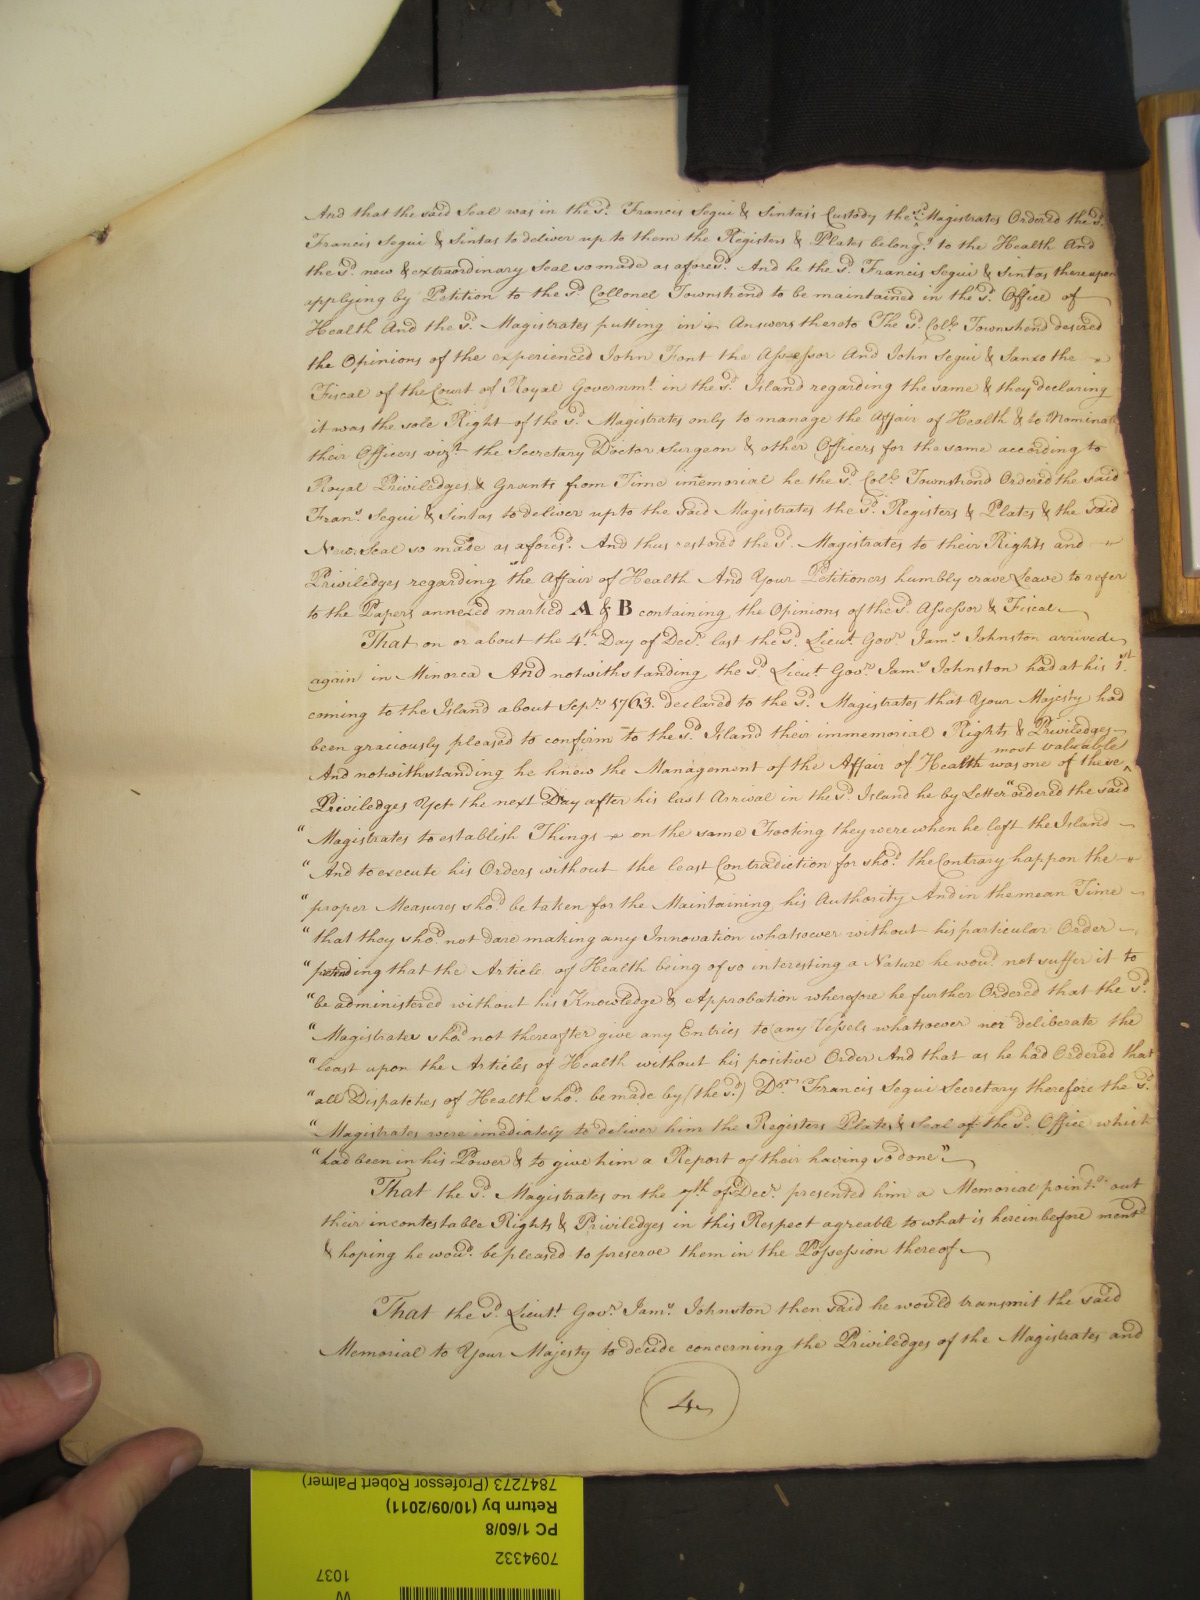 And that the said Seal was in the sd. Francis Segui & Sintas's Custody the sd. Magistrates Ordered the sd.
Francis Segui & Sintas to deliver up to them the Registers & Plates belongg. to the Health And
the sd. new & extraordinary Seal so made as aforesd. And he the sd. Francis Segui & Sintas thereupon
applying by Petition to the sd. Collonel Townshend to be maintained in the sd. Office of
Health And the sd. Magistrates putting in Answers thereto The sd. Coll. Townshend desired
the Opinions of the experienced John Font the Assessor And John Segui & Sanxo the
Fiscal of the Court of Royal Governmt. in the sd. Island regarding the same & they declaring
it was the sole Right of the sd. Magistrates only to manage the Affair of Health & to Nominate
their Officers vizt. the Secretary Doctor Surgeon & other Officers for the same according to
Royal Priviledges & Grants from Time imemorial he the sd. Coll. Townshend Ordered the said
Frans. Segui & Sintas to deliver up to the said Magistrates the sd. Registers & Plates & the said
New Seal so made as aforesd. And thus restored the sd. Magistrates to their Rights and
Priviledges regarding the Affair of Health And Your Petitioners humbly crave Leave to refer
to the Papers annexed marked A & B containing the Opinions of the sd. Assessor & Fiscal
That on or about the 4th. Day of Decr. last the sd. Lieut. Govr. Jams. Johnston arrived
again in Minorca And notwithstanding the sd. Lieut. Govr. Jams. Johnston had at his 1st.
coming to the Island about Sepr. 1763. declared to the sd. Magistrates that Your Majesty had
been graciously pleased to confirm to the sd. Island their immemorial Rights & Priviledges
most valuable
And notwithstanding he knew the Management of the Affair of Health was one of these ^
Priviledges Yet the next Day after his last Arrival in the sd. Island he by Letter "ordered the said
"Magistrates to establish Things on the same Footing they were when he left the Island
"And to execute his Orders without the least Contradiction for shod. the Contrary happen the
"proper Measures shod. be taken for the Maintaining his Authority And in the mean Time
"that they shod. not dare making any Innovation whatsoever without his particular Order
"pretending that the Article of Health being of so interesting a Nature he woud. not suffer it to
"be administered without his Knowledge & Approbation wherefore he further Ordered that the sd.
"Magistrates shod. not thereafter give any Entries to any Vessels whatsoever nor deliberate the
"least upon the Articles of Health without his positive Order And that as he had Ordered that
"all Dispatches of Health shod. be made by (the sd.) Dr. Francis Segui Secretary therefore the sd.
"Magistrates were imediately to deliver him the Registers Plates & Seal of the sd. Office which
"had been in his Power & to give him a Report of their having so done"
That the sd. Magistrates on the 7th of Decr. presented him a Memorial pointg. out
their incontestable Rights & Priviledges in this Respect agreable to what is hereinbefore mentd
& hoping he woud. be pleased to preserve them in the Possession thereof
That the sd. Lieutt. Govr. Jams. Johnston then said he would transmit the said
Memorial to Your Majesty to decide concerning the Priviledges of the Magistrates and
4
7847273 (Professor Robert Palmer)
Return by (10/09/2011)
PC 1/60/8
7094332
1037